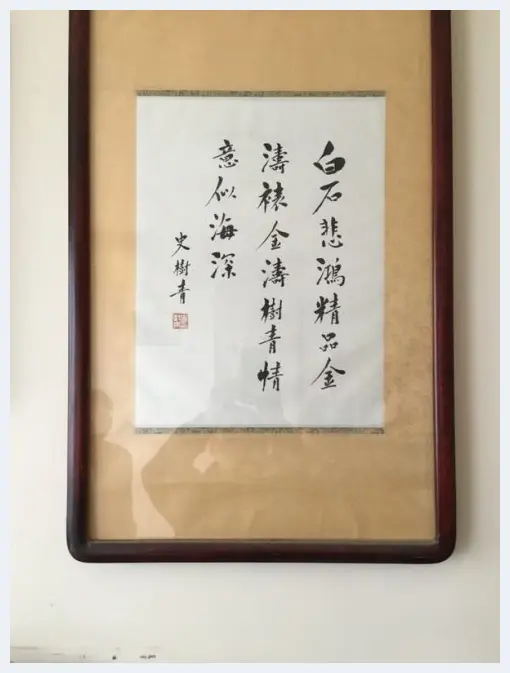 白石悲鴻精品金
濤裱金濤樹青情
意似海深
史樹青